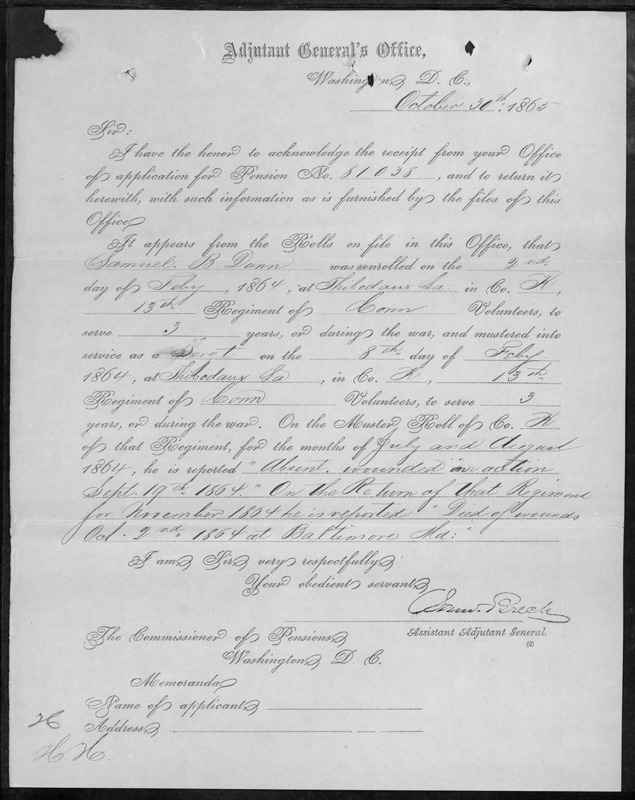 Adjutant General's Office,
Washington, D. C.,
October 30th. 1865
Sir:
I have the honor to acknowledge the receipt from your Office
of application for Pension No. 81038, and to return it
herewith, with such information as is furnished by the files of this
Office
It appears from the Rolls on file in this Office, that
Samuel. B Dunn was enrolled on the 2nd
day of Feby, 1864, at Thibodaux La: in Co. K,
13th Regiment of Conn Volunteers, to
serve 3 years, or during the war, and mustered into
service as a Sergt on the 8th day of Feby
1864, at Thibodaux La, in Co. K, 13th
Regiment of Conn Volunteers, to serve 3
years, or during the war. On the Muster Roll of Co. K
of that Regiment, for the months of July and August
1864, he is reported "Absent. wounded in action
Sept. 19th 1864." On the Return of that Regiment
for November 1864 he is reported "Died of wounds
Oct. 2nd 1864 at Baltimore Md:"
I am Sir, very respectfully,
Your obedient servant,
Saml. Breck
Assistant Adjutant General.
The Commissioner of Pensions,
Washington, D C.
Memoranda
Name of applicant,
Address,